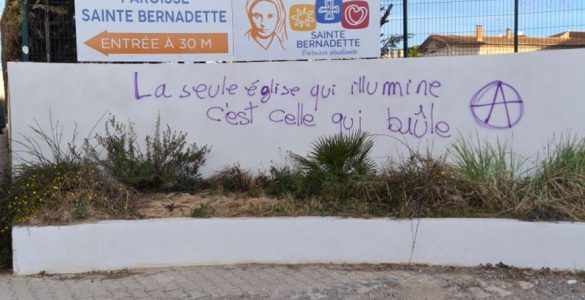 PAROISSE
SAINTE BERNADETTE
ENTRÉE À 30 M
SAINTE
BERNADETTE
Paroisse étudiante
La seule église qui illumine
c'est celle qui brûle